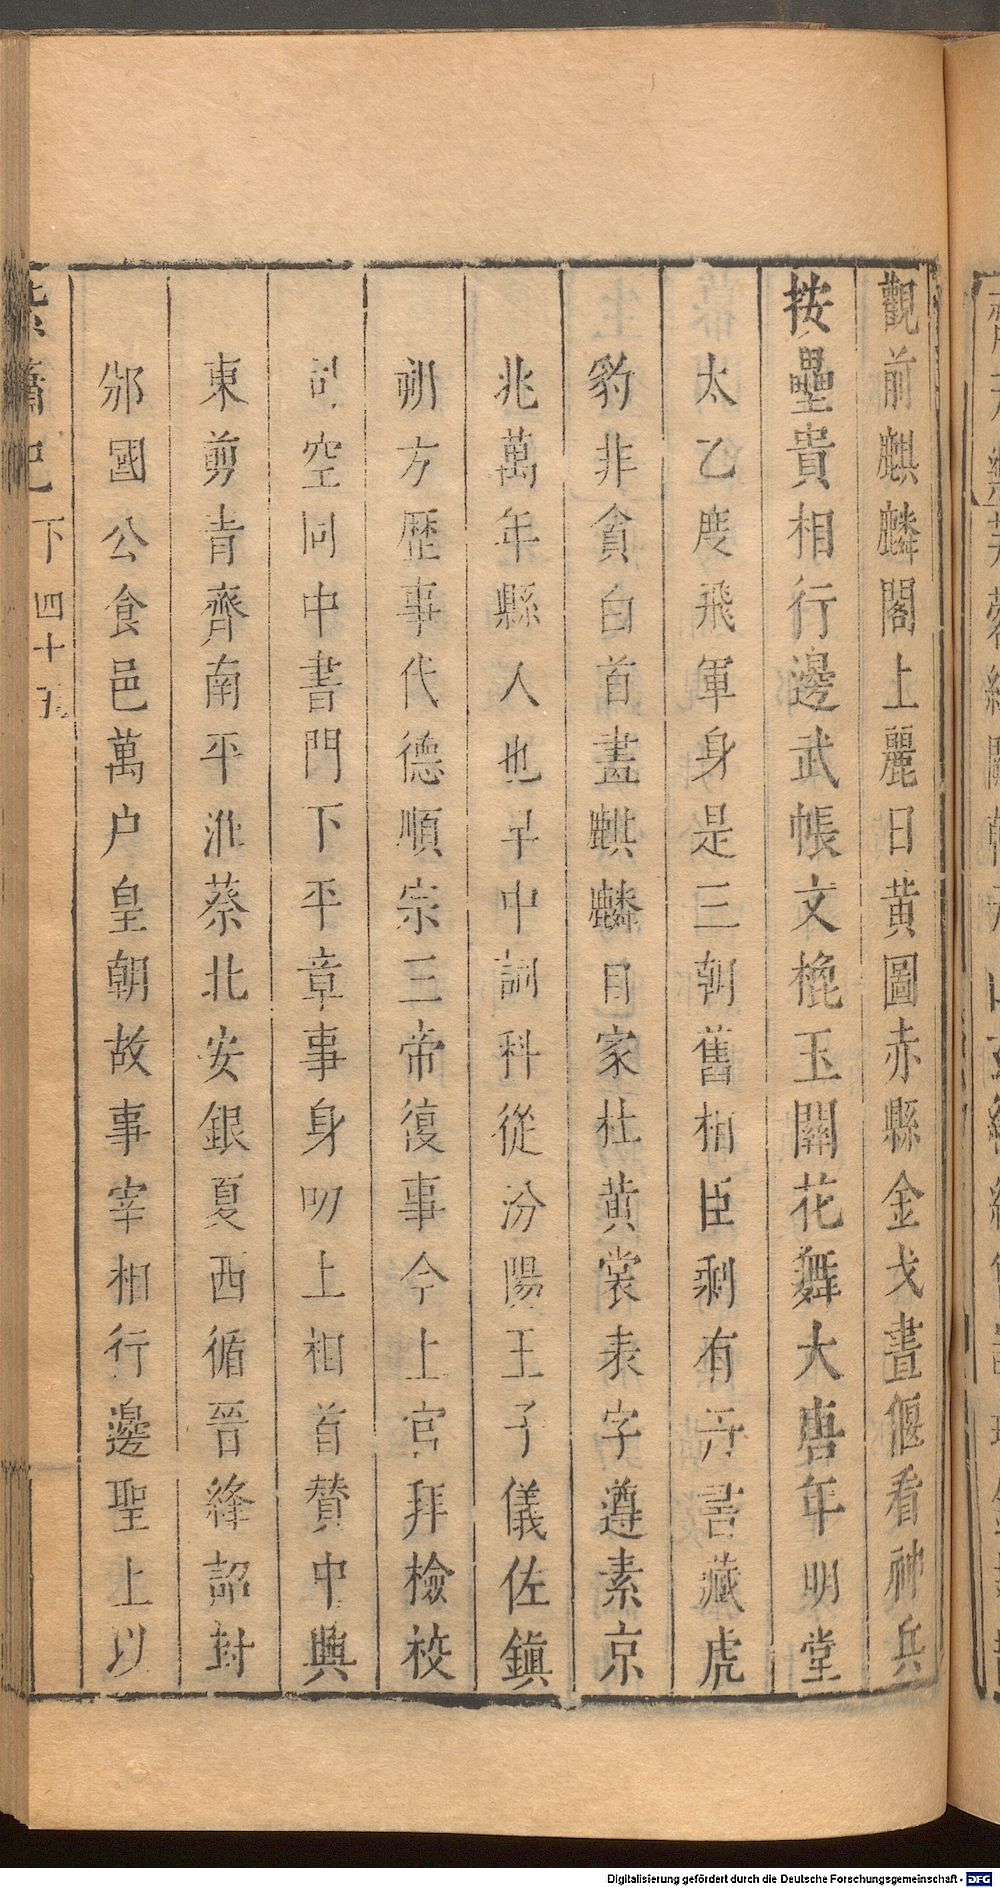 觀前麒麟閣上麗日黄圖赤縣金戈晝偃看神兵
按壘貴相行邊武帳文槐玉關花舞大唐年明堂
太乙度飛軍身是三朝舊相臣剩有丹書藏虎
豹非貪白首畫麒麟目家杜黄裳表字遵素京
兆萬年縣人也早中詞科從汾陽王子儀佐鎮
朔方歷事代德順宗三帝復事今上官拜檢校
司空同中書門下平章事身叨上相首贊中興
東剪青齊南平淮蔡北安銀夏西循晉絳詔封
邠國公食邑萬户皇朝故事宰相行邊聖上以
紫簫記 下 四十五
Digitalisierung gefördert durch die Deutsche Forschungsgemeinschaft - DFG